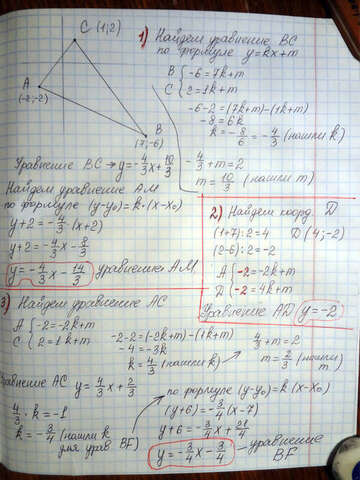 C (1;2)
A
(-2;-2)
B
(7;-6)
1) Найдем уравнение BC
по формуле y=kx+m
B { -6=7k+m
C { 2=1k+m
-6-2=(7k+m)-(1k+m)
-8=6k
k=-8/6=-4/3 (нашли k)
-4/3+m=2
m=10/3 (нашли m)
Уравнение BC → y=-4/3x+10/3
Найдем уравнение AM
по формуле (y-y₀)=k·(x-x₀)
y+2=-4/3(x+2)
y+2=-4/3x-8/3
y=-4/3x-14/3 уравнение AM
2) Найдем коорд. D
(1+7):2=4 D(4;-2)
(2-6):2=-2
A { -2=-2k+m
D { -2=4k+m
Уравнение AD y=-2
3) Найдем уравнение AC
A { -2=-2k+m
C { 2=1k+m
-2-2=(-2k+m)-(1k+m)
-4=-3k
k=4/3 (нашли k)
4/3+m=2
m=2/3 (нашли m)
Уравнение AC y=4/3x+2/3
4/3·k=-1
k=-3/4 (нашли k
для урав BF)
по формуле (y-y₀)=k(x-x₀)
(y+6)=-3/4(x-7)
y+6=-3/4x+21/4
y=-3/4x-3/4 - уравнение
BF